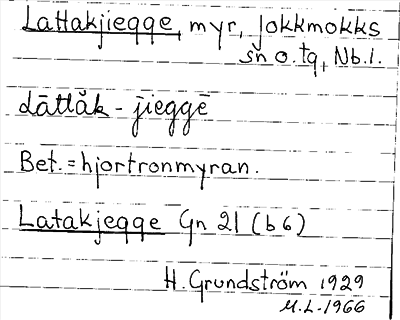 Lattakjiegge, myr, Jokkmokks
sn o. tg, Nb. l.
Làttăk - jieggē
Bet. = hjortronmyran.
Latakjegge Gn 21 (b 6)
H. Grundström 1929
M.L. - 1966